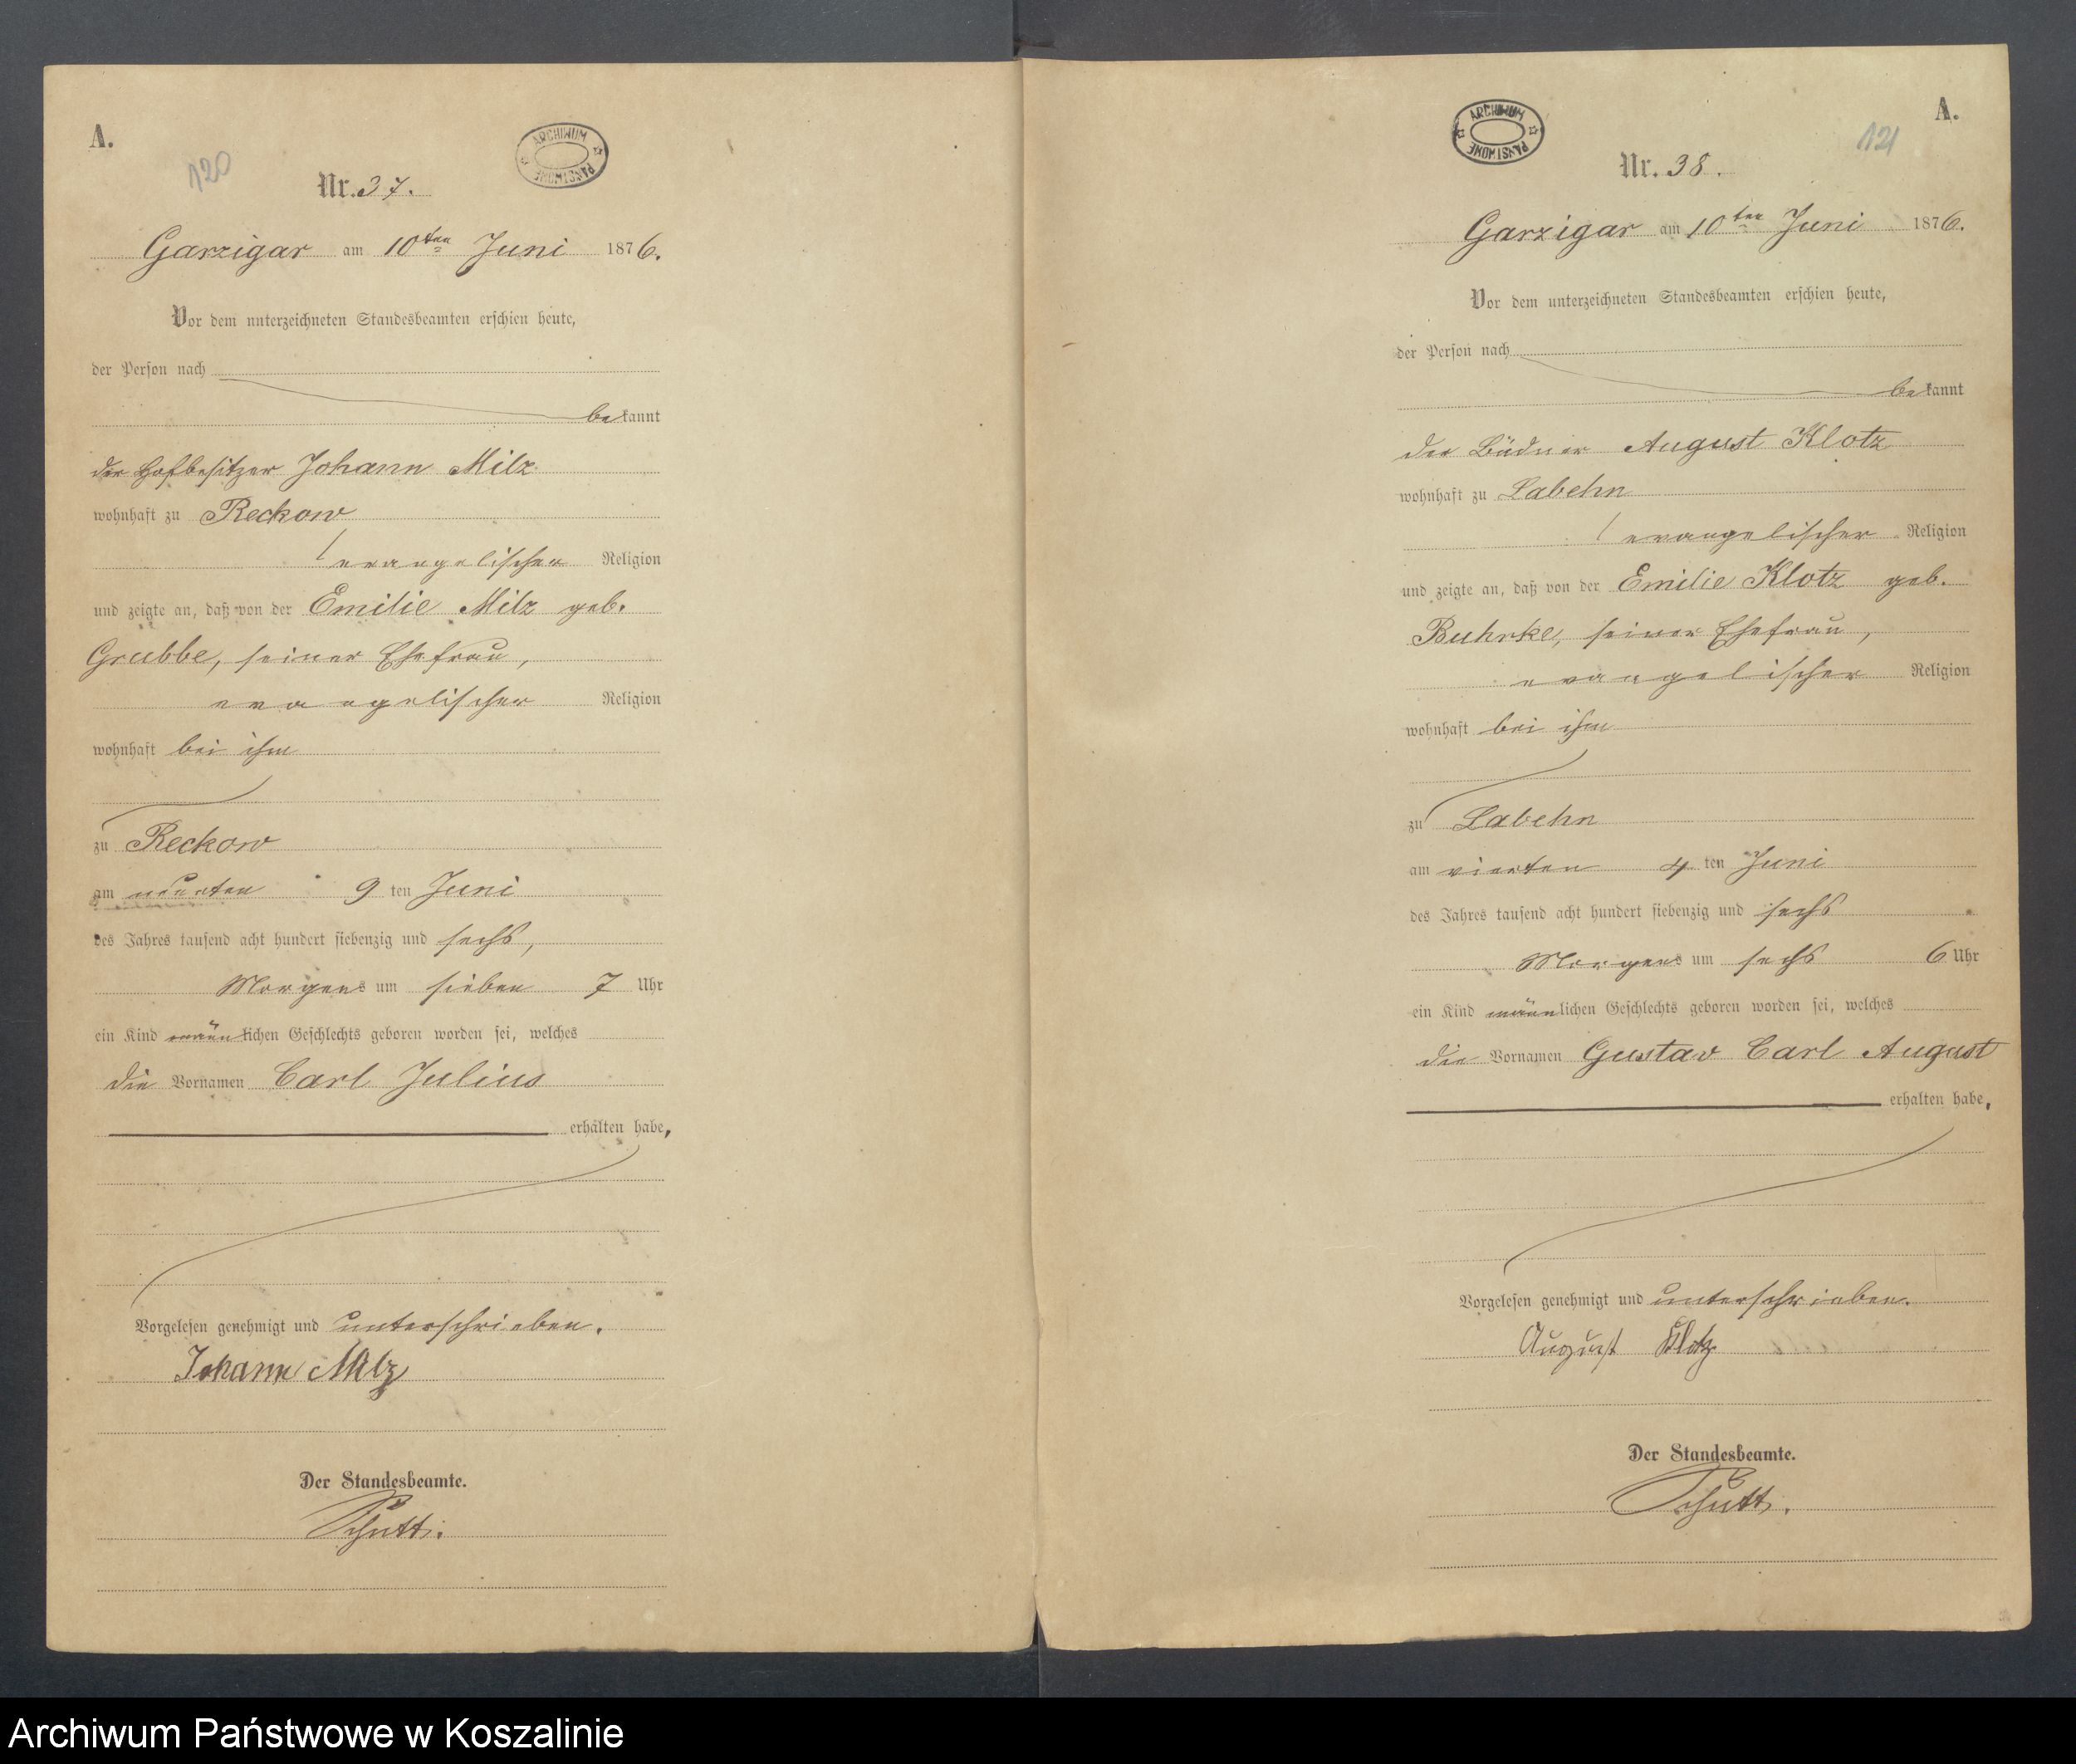 A.
120
ARCHIWUM PAŃSTWOWE
Nr. 37.
Garzigar am 10ten Juni 1876.
Vor dem unterzeichneten Standesbeamten erschien heute,
der Person nach
bekannt
der Hofbesitzer Johann Milz
wohnhaft zu Reckow
evangelischer Religion
und zeigte an, daß von der Emilie Milz geb.
Grubbe, seiner Ehefrau,
evangelischer Religion
wohnhaft bei ihm
zu Reckow
am neunten 9 ten Juni
des Jahres tausend acht hundert siebenzig und sechs,
Morgens um sieben 7 Uhr
ein Kind männlichen Geschlechts geboren worden sei, welches
die Vornamen Carl Julius
erhalten habe,
Vorgelesen genehmigt und unterschrieben.
Johann Milz
Der Standesbeamte.
Schütt.
A.
121
ARCHIWUM PAŃSTWOWE
Nr. 38.
Garzigar am 10ten Juni 1876.
Vor dem unterzeichneten Standesbeamten erschien heute,
der Person nach
bekannt
der Büdner August Klotz
wohnhaft zu Labehn
evangelischer Religion
und zeigte an, daß von der Emilie Klotz geb.
Buhrke, seiner Ehefrau,
evangelischer Religion
wohnhaft bei ihm
zu Labehn
am vierten 4 ten Juni
des Jahres tausend acht hundert siebenzig und sechs
Morgens um sechs 6 Uhr
ein Kind männlichen Geschlechts geboren worden sei, welches
die Vornamen Gustav Carl August
erhalten habe,
Vorgelesen genehmigt und unterschrieben.
August Klotz
Der Standesbeamte.
Schütt.
Archiwum Państwowe w Koszalinie